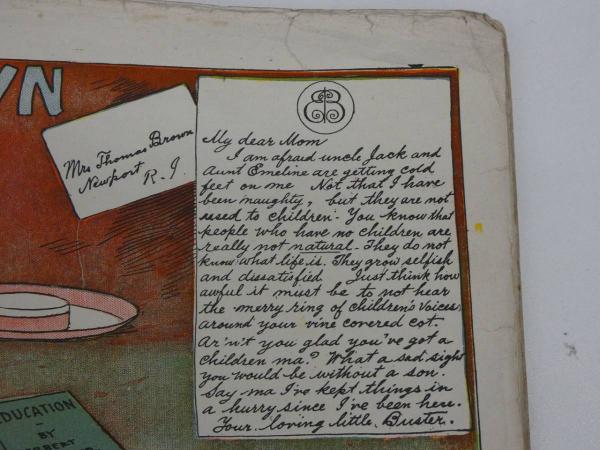 YN
Mrs Thomas Brown
Newport R.I.
BB
My dear Mom
I am afraid uncle Jack and
Aunt Emeline are getting cold
feet on me Not that I have
been naughty, but they are not
used to children. You know that
people who have no children are
really not natural. They do not
know what life is. They grow selfish
and dissatisfied Just think how
awful it must be to not hear
the merry ring of children's voices
around your vine covered cot.
Ar'n't you glad you've got a
children ma? What a sad sight
you would be without a son.
Say ma I've kept things in
a hurry since I've been here.
Your loving little Buster.
EDUCATION
BY